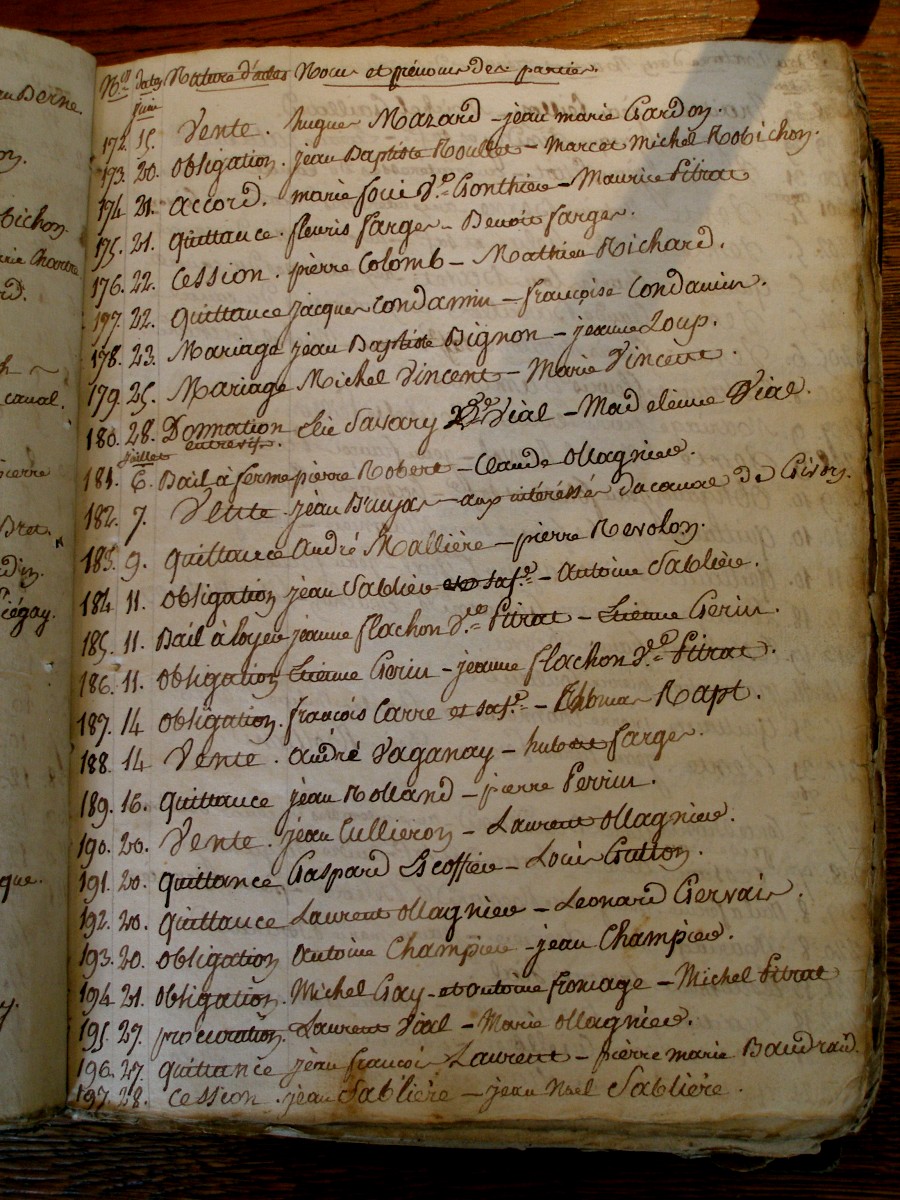 Nos dates Nature d'actes Noms et prénoms des parties.
juin
172. 15. Vente. hugues Mazard - jean marie Gardon.
173. 20. obligation. jean Baptiste Roullet - Marcet Michel Robichon.
174 21. accord. marie Gonthier - Maurice Pitrat
175. 21. quittance. fleuris farges - Benoit farges.
176. 22. Cession. pierre Colomb - Mathieu Richard.
197. 22. quittance jacques Condamin - françoise Condamin.
178. 23. Mariage jean Baptiste Bignon - jeanne Loup.
179. 25. Mariage Michel Vincent - Marie Vincent.
180. 28. Donnation Savary Vial - Madeleine Vial.
entrevifs.
juillet
181. 6. Bail à ferme pierre Robert - Claude ollagnier.
182. 7. Vente jean Bruyas - aux intéressés du canal de Givors.
183. 9. quittance andré Mallière - pierre Revolon.
184 11. obligation jean Sablière et sa fe. - antoine Sablière.
185. 11. Bail à loyer jeanne flachon ve. Pitrat - Etienne Gerin.
186. 11. obligation Etienne Gerin - jeanne flachon ve. Pitrat.
187. 14 obligation. françois Carre et sa fe. - Thomas Rapt.
188. 14 Vente. andré Vaganay - hubert farges.
189. 16. quittance jean Rolland - pierre Perrin.
190. 20. Vente. jean Cullieron - Laurent ollagnier.
191. 20. quittance Gaspard Escoffier - Louis Gutton.
192. 20. quittance Laurent ollagnier - Leonard Gervais.
193. 20. obligation antoine Champier - jean Champier.
194 21. obligation. Michel Gay - et antoine fromage - Michel Pitrat
195. 27. procuration. Laurent Vial - Marie ollagnier.
196. 27. quittance jean françois Laurent - pierre marie Baudrand.
197. 28. Cession. jean Sablière - jean Noel Sablière.